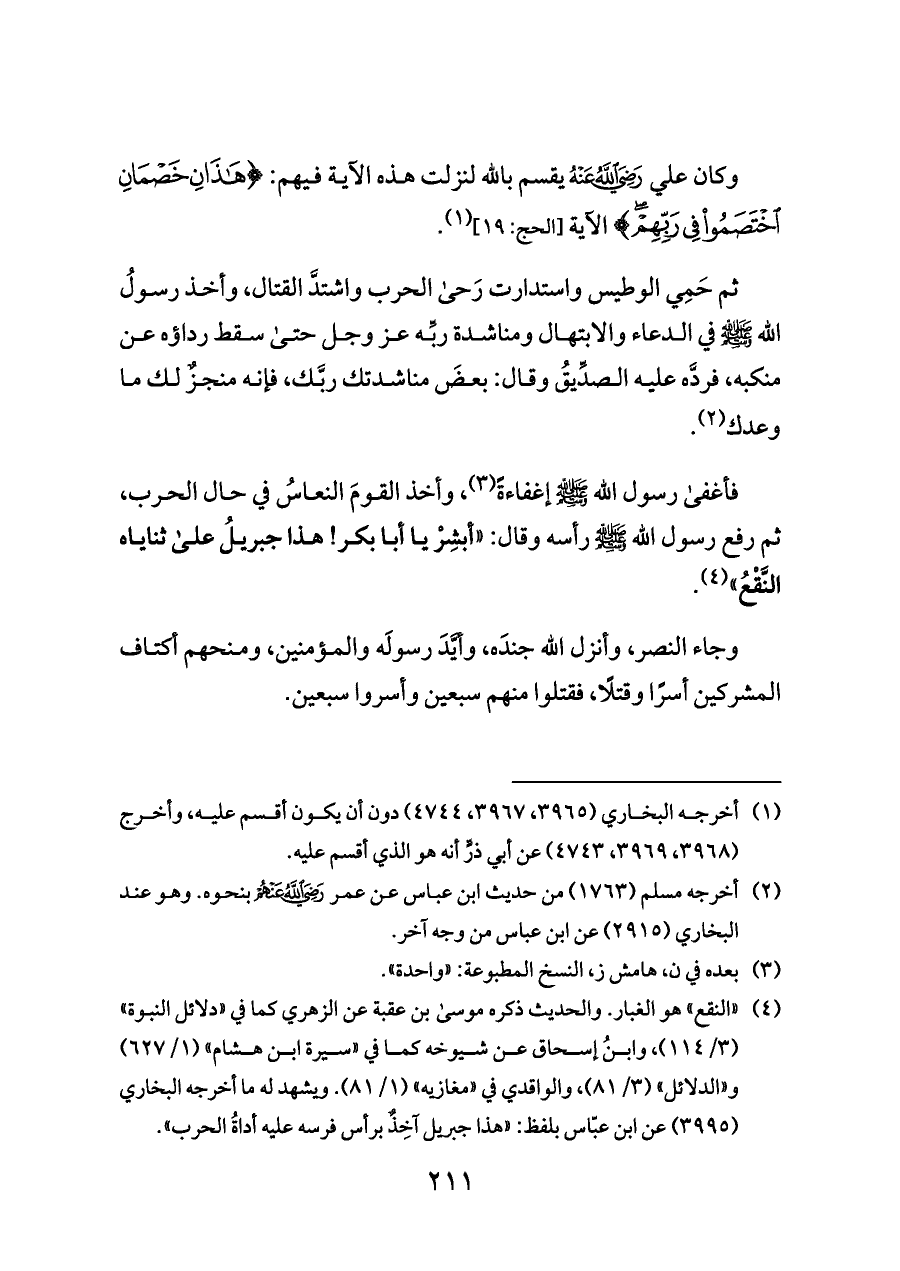 وكان علي رَضِيَ اللَّهُ عَنْهُ يقسم بالله لنزلت هذه الآية فيهم: ﴿هَٰذَانِ خَصْمَانِ
ٱخْتَصَمُوا۟ فِى رَبِّهِمْۖ﴾ الآية [الحج: ١٩](١).
ثم حَمِي الوطيس واستدارت رَحىٰ الحرب واشتدَّ القتال، وأخذ رسولُ
الله ﷺ في الدعاء والابتهال ومناشدة ربِّه عز وجل حتىٰ سقط رداؤه عن
منكبه، فردَّه عليه الصدِّيقُ وقال: بعضَ مناشدتك ربَّك، فإنه منجزٌ لك ما
وعدك(٢).
فأغفىٰ رسول الله ﷺ إغفاءةً(٣)، وأخذ القومَ النعاسُ في حال الحرب،
ثم رفع رسول الله ﷺ رأسه وقال: «أبشِرْ يا أبا بكر! هذا جبريلُ علىٰ ثناياه
النَّقْعُ»(٤).
وجاء النصر، وأنزل الله جندَه، وأيَّدَ رسولَه والمؤمنين، ومنحهم أكتاف
المشركين أسرًا وقتلًا، فقتلوا منهم سبعين وأسروا سبعين.
(١) أخرجه البخاري (٣٩٦٥، ٣٩٦٧، ٤٧٤٤) دون أن يكون أقسم عليه، وأخرج
(٣٩٦٨، ٣٩٦٩، ٤٧٤٣) عن أبي ذرٍّ أنه هو الذي أقسم عليه.
(٢) أخرجه مسلم (١٧٦٣) من حديث ابن عباس عن عمر رَضِيَ اللَّهُ عَنْهُمْ بنحوه. وهو عند
البخاري (٢٩١٥) عن ابن عباس من وجه آخر.
(٣) بعده في ن، هامش ز، النسخ المطبوعة: «واحدة».
(٤) «النقع» هو الغبار. والحديث ذكره موسىٰ بن عقبة عن الزهري كما في «دلائل النبوة»
(٣/ ١١٤)، وابنُ إسحاق عن شيوخه كما في «سيرة ابن هشام» (١/ ٦٢٧)
و«الدلائل» (٣/ ٨١)، والواقدي في «مغازيه» (١/ ٨١). ويشهد له ما أخرجه البخاري
(٣٩٩٥) عن ابن عبّاس بلفظ: «هذا جبريل آخِذٌ برأس فرسه عليه أداةُ الحرب».
٢١١